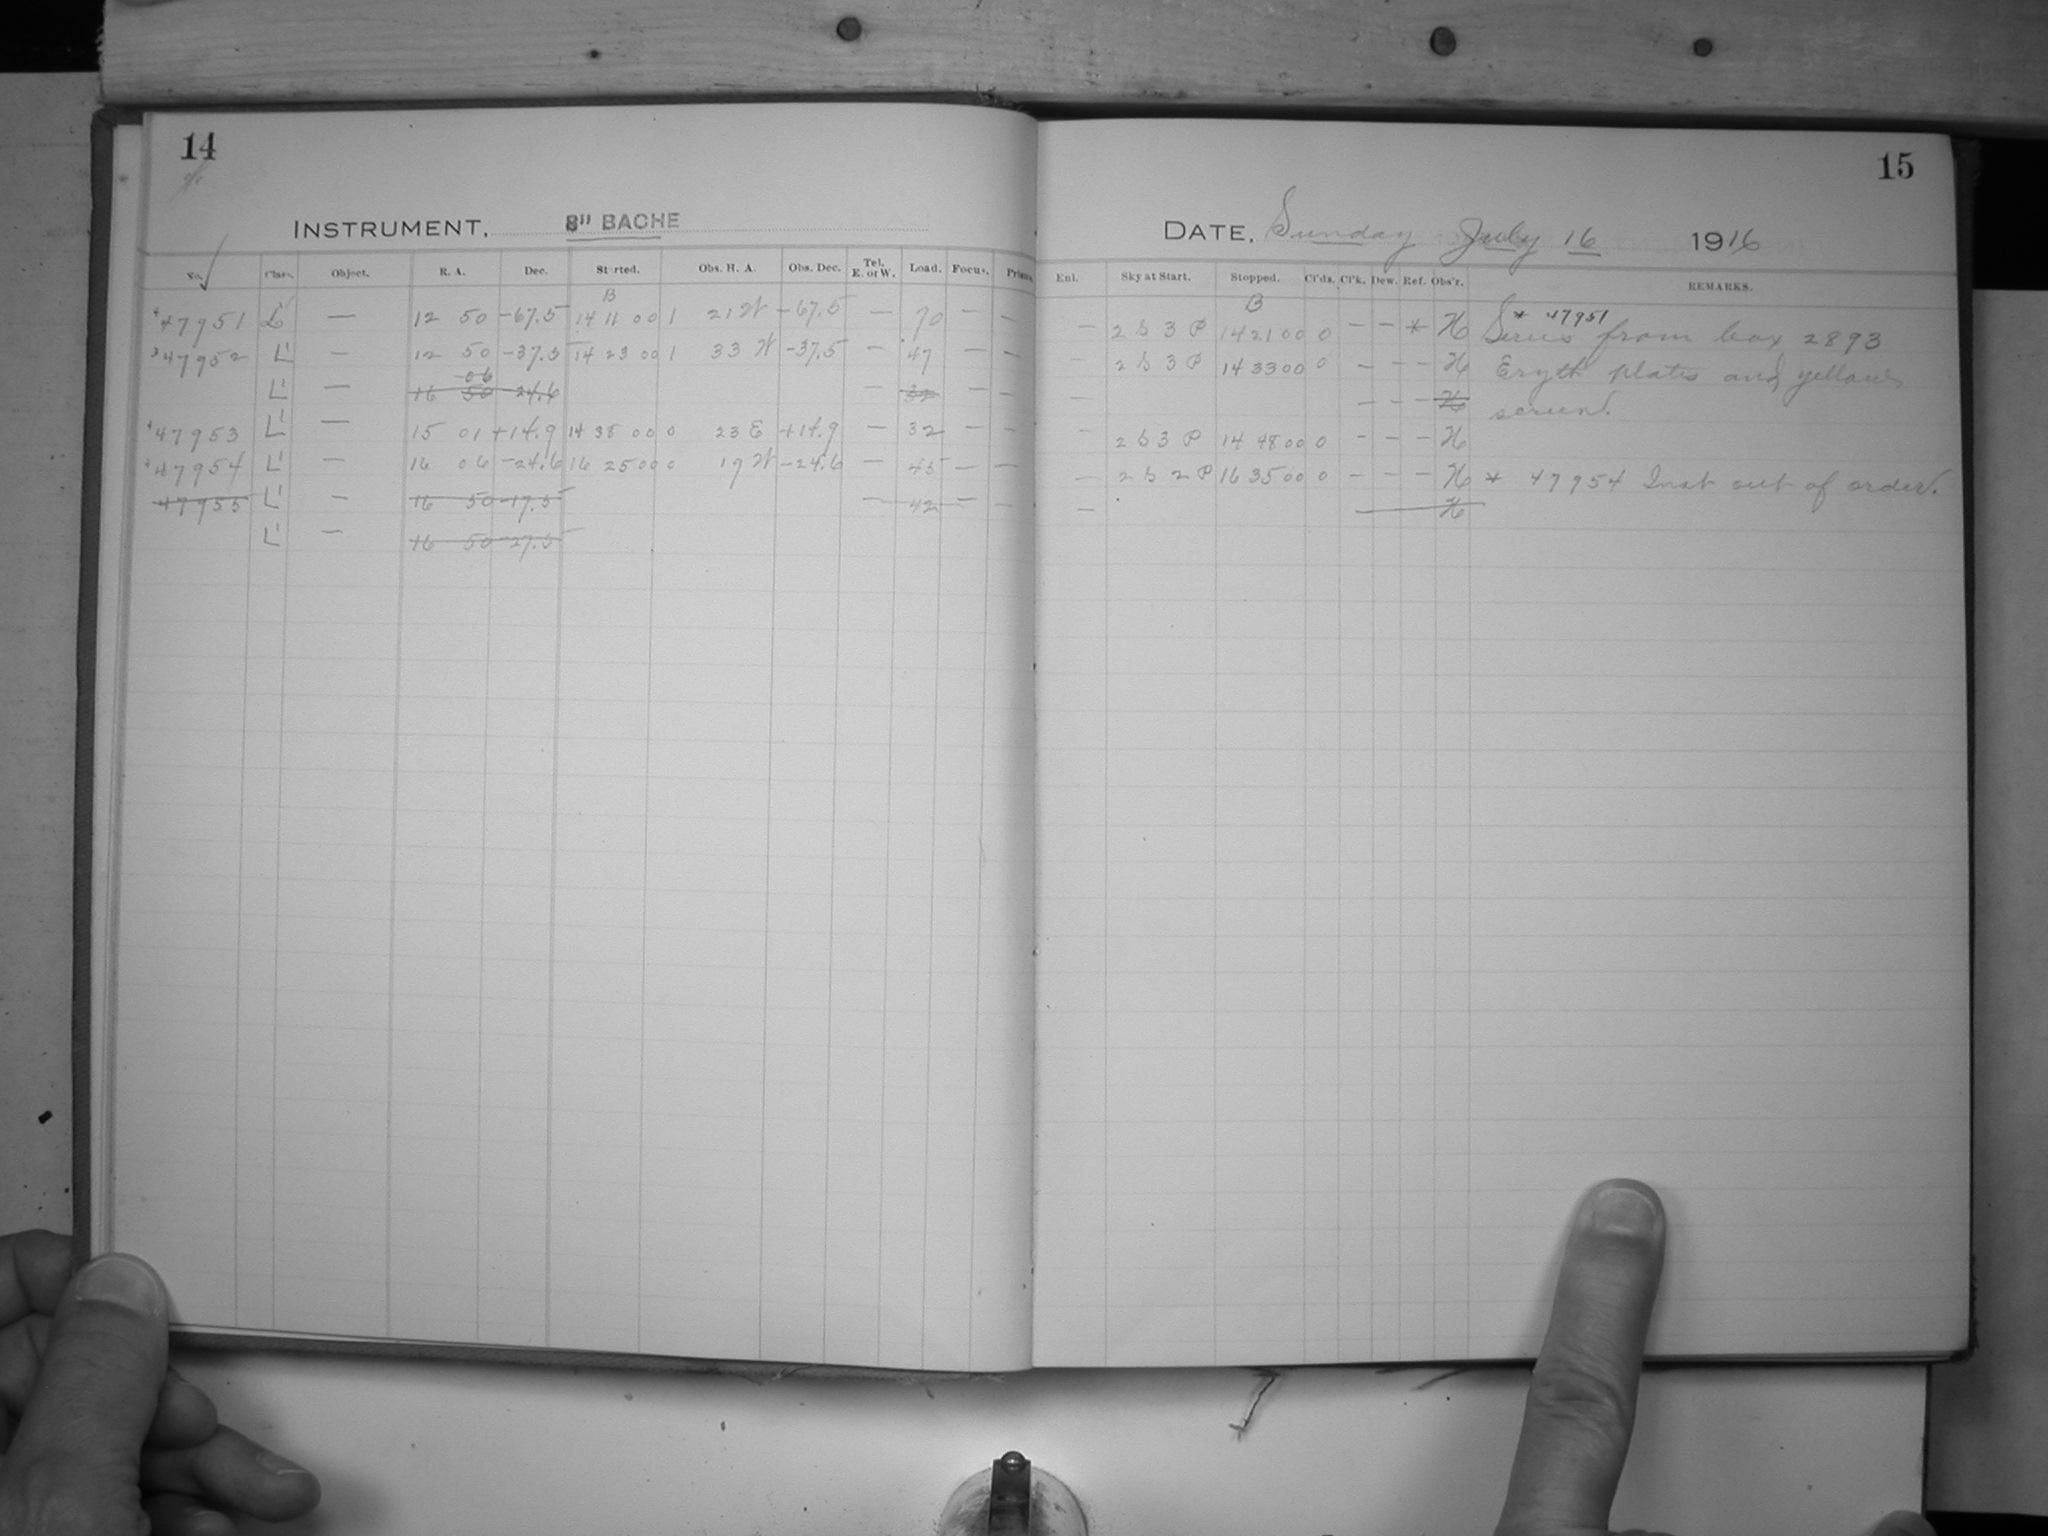 14
INSTRUMENT, 8" BACHE
No. Class. Object. R. A. Dec. Started. Obs. H. A. Obs. Dec. Tel. E. or W. Load. Focus. Prism
B
47951 L' — 12 50 -67.5 14 11 00 1 21 W -67.5 — 70 — —
47952 L' — 12 50 -37.5 14 23 00 1 33 W -37.5 — 47 — —
06
L' — 16 50 -24.6 — 32 — —
47953 L' — 15 01 +14.9 14 38 00 0 23 E +14.9 — 32 — —
47954 L' — 16 06 -24.6 16 25 00 0 19 W -24.6 — 45 — —
47955 L' — 16 50 -17.5 — 42 — —
L' — 16 50 -27.5
15
DATE, Sunday July 16 1916
Enl. Sky at Start. Stopped. Cl'ds. Cl'k. Dew. Ref. Obs'r. REMARKS.
B
* 47951
— 2 S 3 P 14 21 00 0 — — * H Series from box 2893
— 2 S 3 P 14 33 00 0 — — — H Eryth plates and yellow
— — — — H screen.
— 2 S 3 P 14 48 00 0 — — — H
— 2 S 2 P 16 35 00 0 — — — H * 47954 Inst out of order.
— H